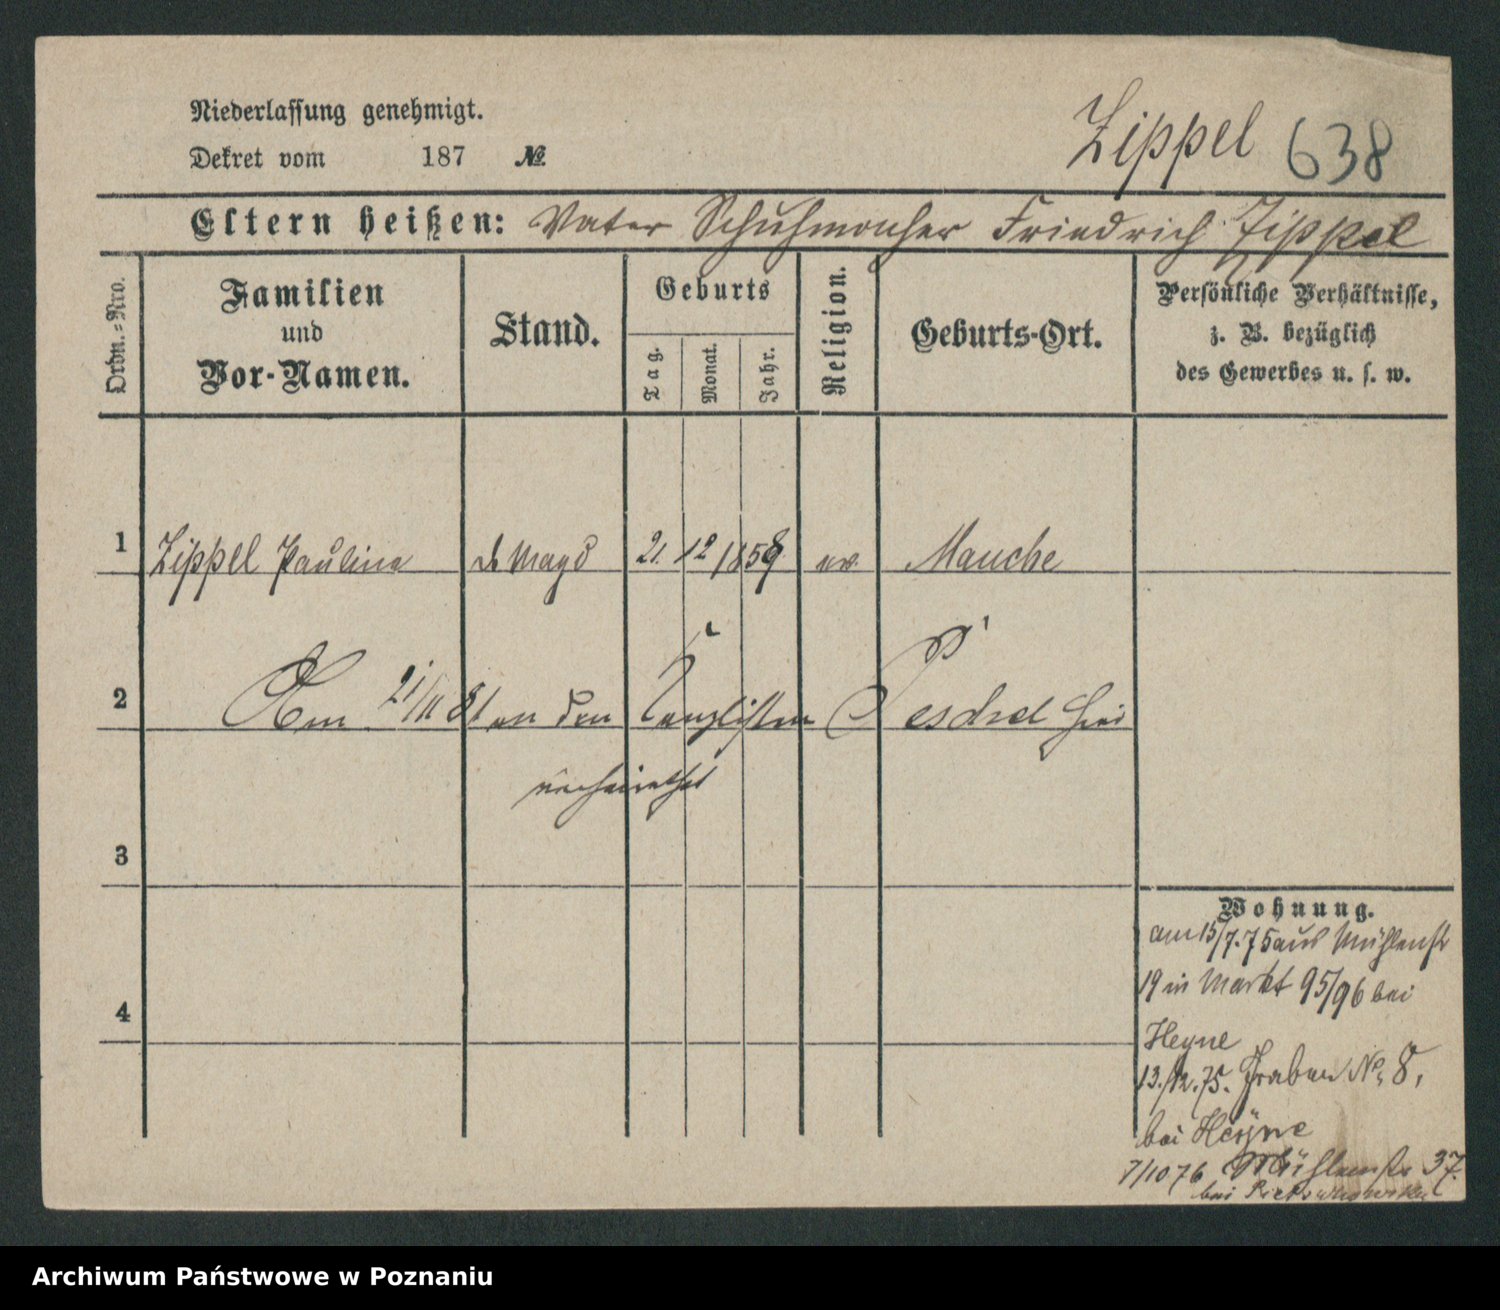 Niederlassung genehmigt.
Dekret vom 187 №
Zippel 638
Eltern heißen: Vater Schuhmacher Friedrich Zippel
Ordn.-Nro.
Familien und Vor-Namen.
Stand.
Geburts
Tag.
Monat.
Jahr.
Religion.
Geburts-Ort.
Persönliche Verhältnisse,
z. B. bezüglich
des Gewerbes u. s. w.
1 Zippel Paulina Magd 21. 12 1858 ev. Mauche
2 Am 21/11 81 an den Kanzlisten Peschel hier
verheirathet
3
4
Wohnung.
am 15/7.75 aus Mühlenstr
19 in Markt 95/96 bei
Heyne
13./12.75. Graben No. 8,
bei Heyne
7/10 76 Mühlenstr 37.
bei
Archiwum Państwowe w Poznaniu